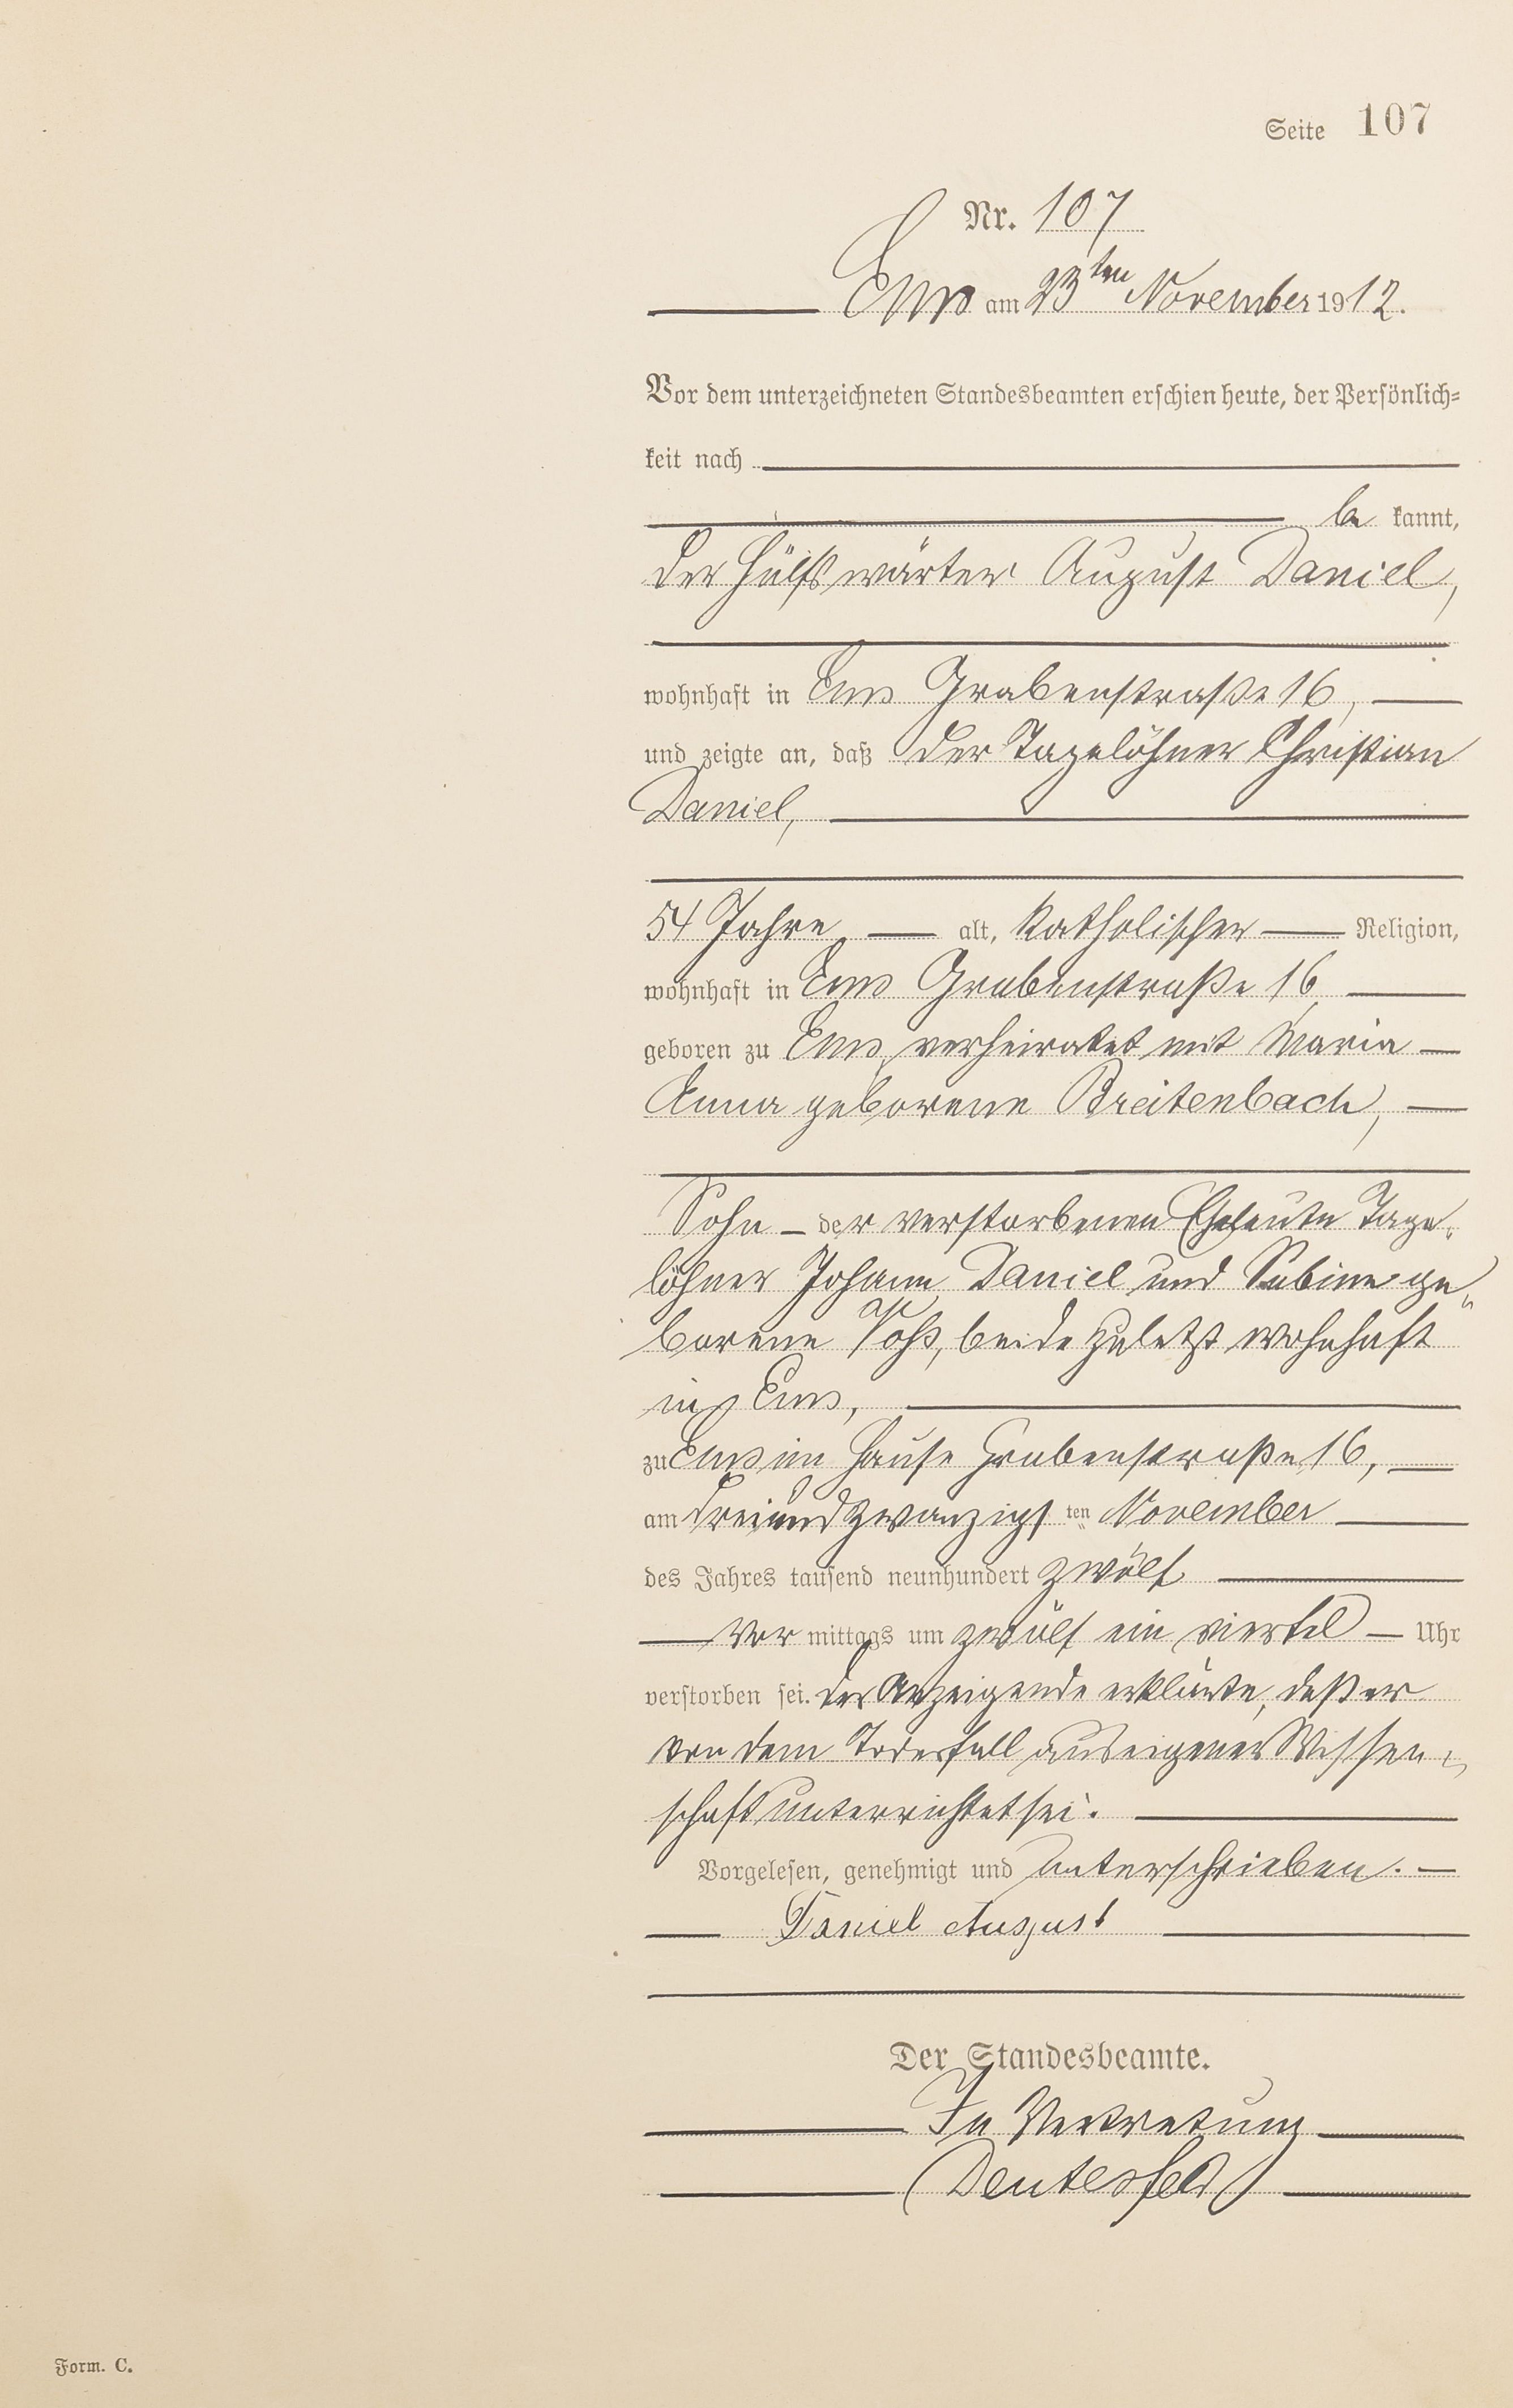 Seite 107
Nr. 107
Ems am 23ten November 1912.
Vor dem unterzeichneten Standesbeamten erschien heute, der Persönlich=
keit nach
be kannt,
der Hülfswärter August Daniel,
wohnhaft in Ems Grabenstraße 16,
und zeigte an, daß der Tagelöhner Christian
Daniel,
54 Jahre alt, katholischer Religion,
wohnhaft in Ems Grabenstraße 16
geboren zu Ems, verheiratet mit Maria
Anna geborene Breitenbach,
Sohn der verstorbenen Eheleute Tage-
löhner Johann Daniel und Sabine ge-
borene beide zuletzt wohnhaft
in Ems,
zu Ems im Hause Grabenstraße 16,
am dreiundzwanzigsten November
des Jahres tausend neunhundert zwölf
vor mittags um zwölf ein viertel Uhr
verstorben sei. Der Anzeigende erklärte, daß er
von dem Todesfall aus eigener Wissen-
schaft unterrichtet sei.
Vorgelesen, genehmigt und unterschrieben.
Daniel August
Der Standesbeamte.
In Vertretung
(Deutesfeld)
Form. C.